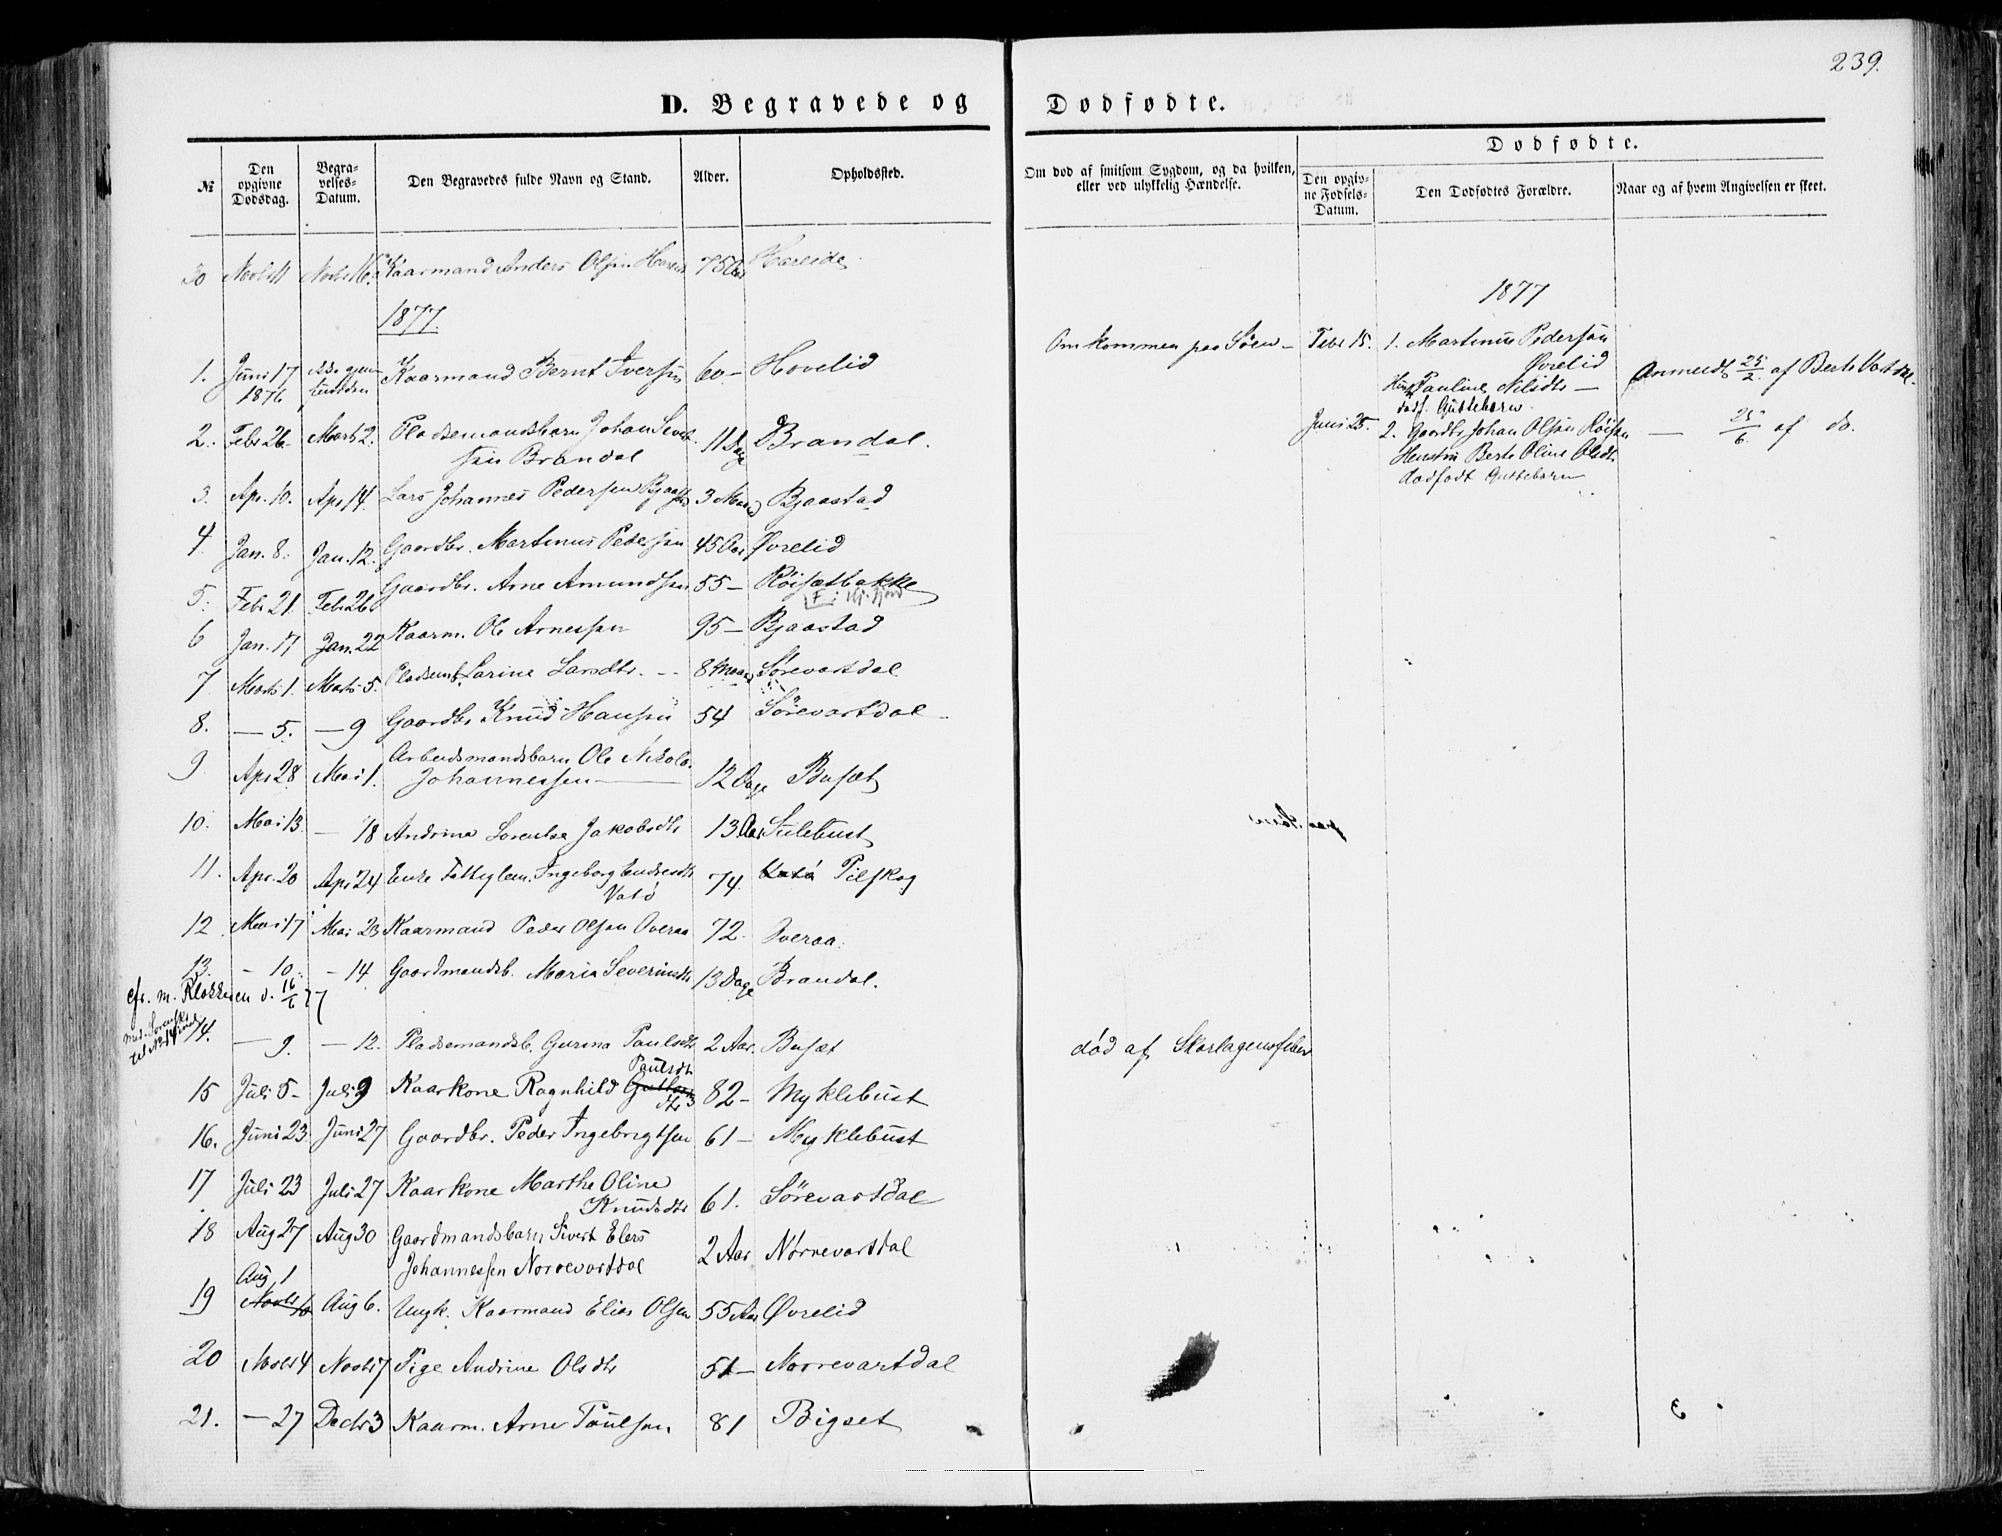 239.
D. Begravede og Dødfødte.
№ Den opgivne Dødsdag. Begravelses-Datum. Den Begravedes fulde Navn og Stand. Alder. Opholdssted.
Om død af smitsom Sygdom, og da hvilken, eller ved ulykkelig Hændelse.
Dødfødte.
Den opgivne Fødsels-Datum. Den Dødfødtes Forældre. Naar og af hvem Angivelsen er skeet.
30 Novbr 11 Novbr 16 Kaarmand Anders Olsen 75 Aar
1877.
1. Juni 17 1876 Kaarmand Bernt Iversen 60 — Hovelid Omkommen paa Søen —
2. Febr 26. Marts 2. Pladsemandsbarn Johan Sivert
sen Brandal 11 Dage Brandal.
3. Apr. 10. Apr 14. Lars Johannes Pedersen 3 Maan Bjaastad
4. Jan. 8. Jan. 12. Gaardbr. Martinus Pedersen 45 Aar Øvrelid
5. Febr 21. Febr 26 Gaardbr. Arne Amundsen 55 — Röisætbakke
6 Jan. 17 Jan. 22 Kaarm. Ole Arnessen 95 — Bjaastad
7 Marts 1. Marts 5. Larine Larsdtr. 8 Maan Sørevartdal
8. — 5. — 9 Gaardbr Knud Hansen 54 Sørevartdal
9 Apr 28 Mai 1. Arbeidsmandsbarn Ole Nikolai
Johannessen 12 Dage Busæt
10. Mai 13. — 18 Andrine Lorentse Jakobsdtr 13 Aar Sulebust
11. Apr. 20 Apr 24 Enke Fattiglem. Ingeborg Endresdtr
Vatö 74. Pilskog
12 Mai 17 Mai 23 Kaarmand Peder Olsen Overaa 72. Overaa.
13. — 10. — 14 Gaardmandsb. Maria Severinsdtr 13 Dage Brandal.
cfr. m. Klokkeren d. 16/6 77
med
til No 14 ind
14. — 9. — 12. Pladsemandsb. Gurina Paulsdtr 2 Aar. Busæt død af Skarlagensfeber
Paulsdtr
15 Juli 5 — Juli 9 Kaarkone Ragnhild 82 — Myklebust
16. Juni 23. Juni 27 Gaardbr. Peder Ingebrigtsen 61 — Myklebust
17 Juli 23 Juli 27 Kaarkone Marthe Oline
Knudsdtr 61. Sørevartdal
18 Aug 27 Aug 30 Gaardmandsbarn Sivert Elers
Johannessen Norrevartdal 2 Aar Nørrevartdal
Aug 1
19 Aug 6. Ungk. Kaarmand Elias Olsen 55 Aar Øvrelid
20 Novbr 4 Novbr 7 Pige Andrine Olsdtr 51 — Norrevartdal
21. — 27 Decbr 3 Kaarm. Arne Paulsen 81 Bigset
1877
Febr 15. 1. Martinus Pedersen
Øvrelid
Hustru Pauline Nilsdtr —
dødf. Guttebarn Anmeldt 25/2. af Berte Vatdal.
Juni 25. 2. Gaardbr Johan Olsen Röisæn
Hustru Berte Oline Olsdtr
dødfødt Guttebarn — 25/6. af do.